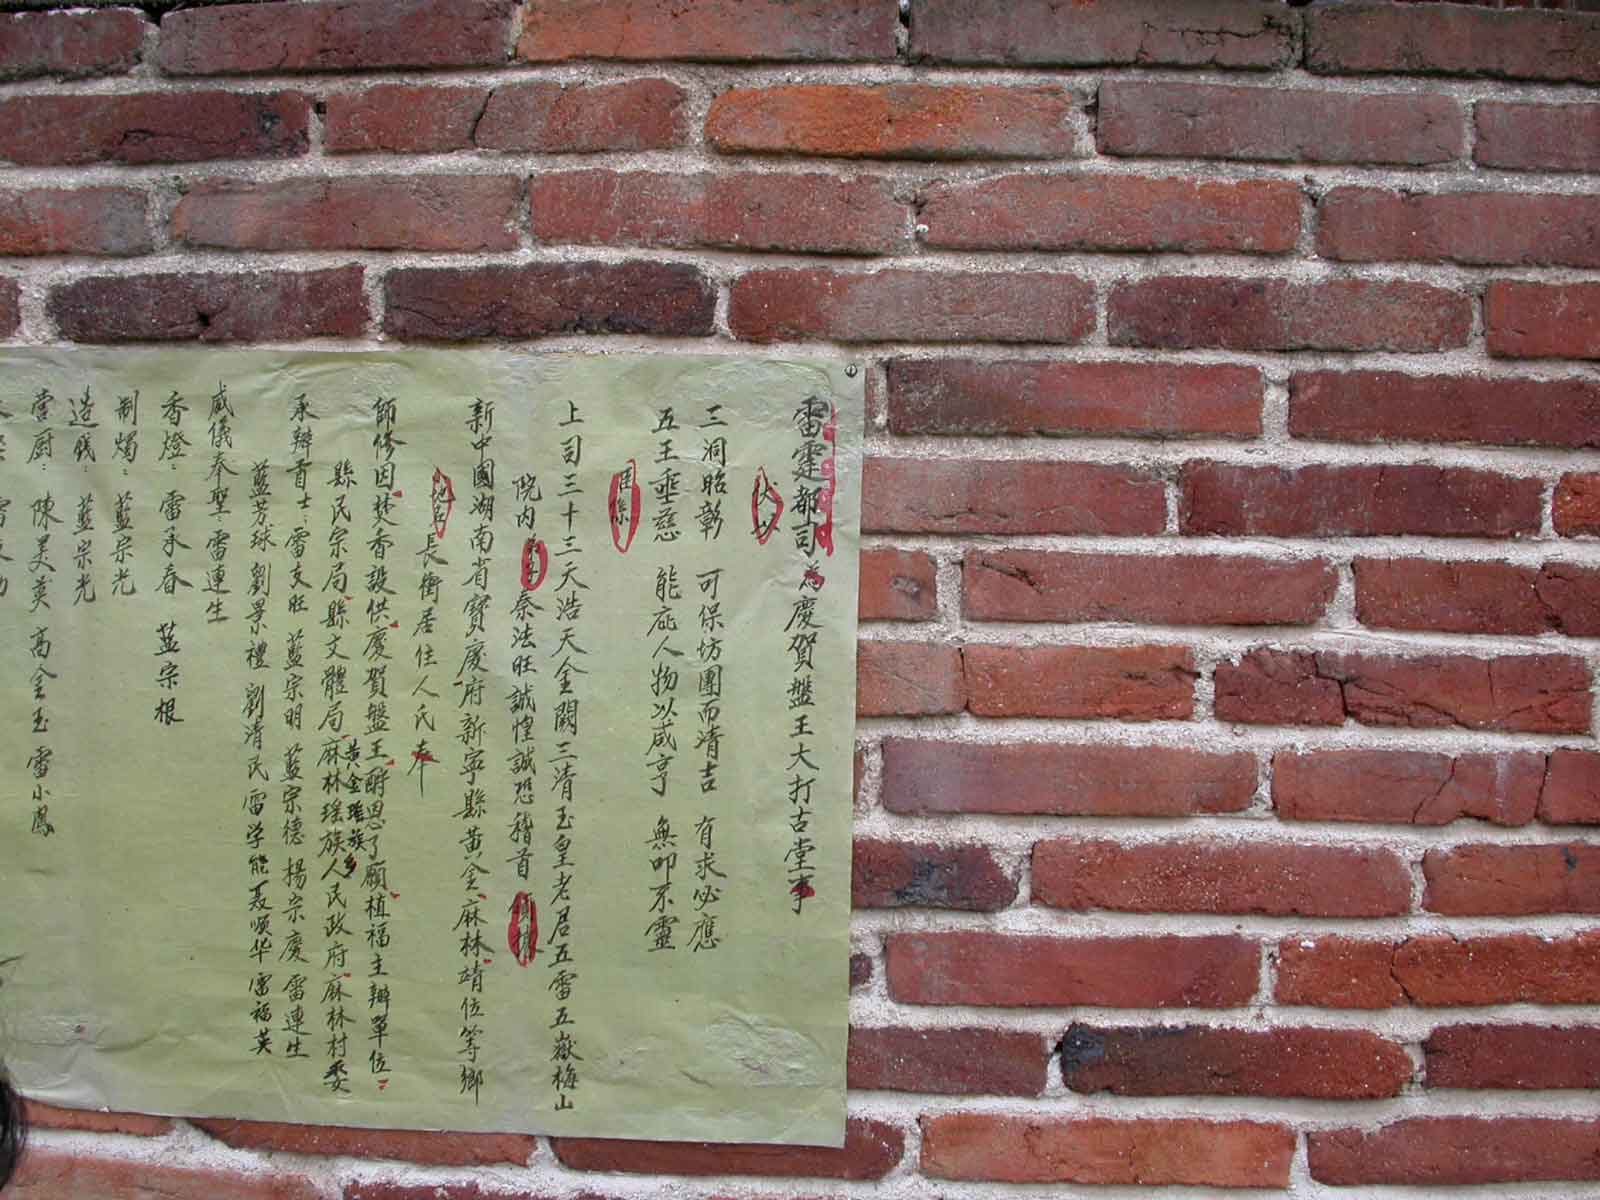 雷霆都司為慶賀盤王大打古堂事
伏以
三洞昭彰 可保坊團而清吉 有求必應
五王垂慈 能庇人物以咸亨 無叩不靈
上司三十三天浩天金闕三清玉皇老居五雷五嶽梅山
院内 秦法旺誠惶誠恐稽首
新中國湖南省寶慶府新寧縣黃金麻林靖位等鄉
地名 長衝居住人民奉
師修因焚香設供慶賀盤王酧恩了願植福主辦單位
縣民宗局縣文體局麻林瑤族人民政府麻林村委
黃金瑤族乡
承辦首士:雷支旺 藍宗明 藍宗德 楊宗慶 雷連生
藍芳球 劉景禮 劉清民 雷学能 聂順华 雷福英
威儀奉聖:雷連生
香燈:雷承春 藍宗根
制燭:藍宗光
造錢:藍宗光
营厨:陳美英 高金玉 雷小鳳